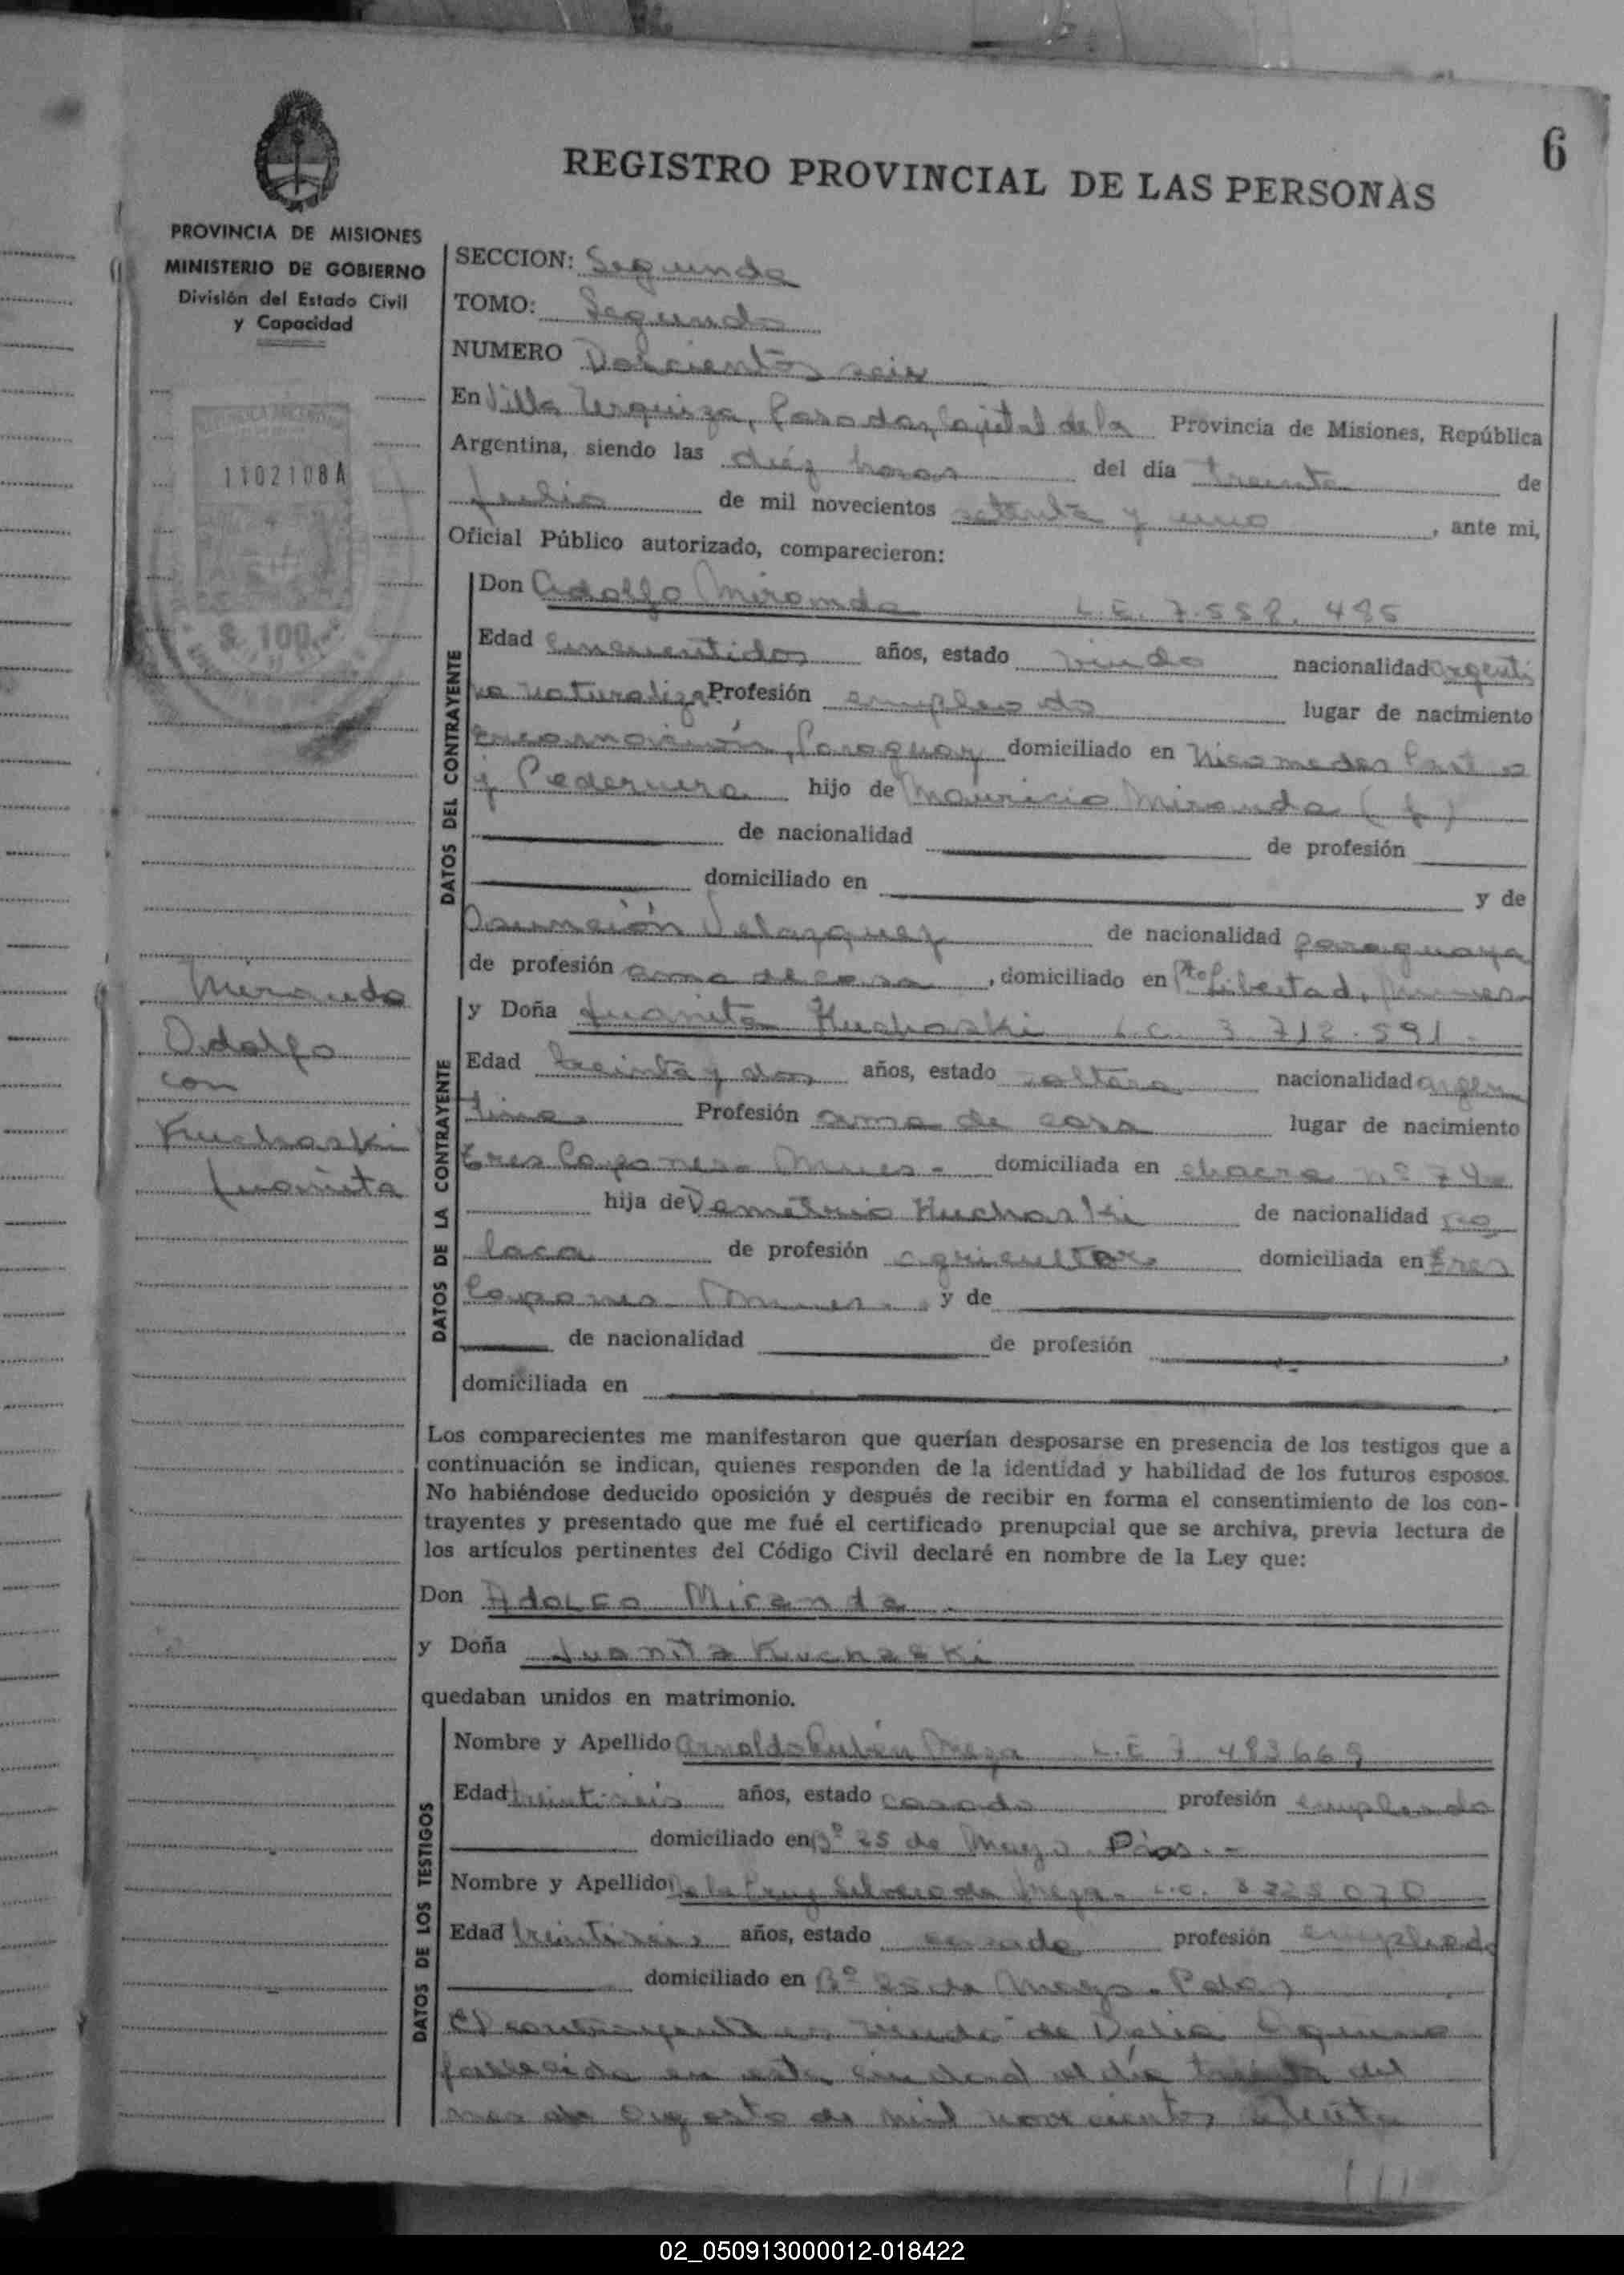 6
REGISTRO PROVINCIAL DE LAS PERSONAS
PROVINCIA DE MISIONES
MINISTERIO DE GOBIERNO
División del Estado Civil
y Capacidad
1102108A
$ 100.
SECCION: Segunda
TOMO: Segundo
NUMERO Doscientos seis
En Villa Urquiza, Posadas, Capital de la Provincia de Misiones, República
Argentina, siendo las diéz horas del día treinta de
Julio de mil novecientos setenta y uno, ante mi,
Oficial Público autorizado, comparecieron:
DATOS DEL CONTRAYENTE
Don Adolfo Miranda L.E. 7.558.485
Edad cincuentidos años, estado viudo nacionalidad argenti
no naturaliza Profesión empleado lugar de nacimiento
Encarnación, Paraguay domiciliado en Nicomedes Castro
y Pedernera hijo de Mauricio Miranda (f)
de nacionalidad de profesión
domiciliado en y de
Asunción Velazquez de nacionalidad paraguaya
de profesión ama de casa, domiciliado en Pto Libertad,
Miranda
Adolfo
con
Kuchaski
Juanita
DATOS DE LA CONTRAYENTE
y Doña Juanita Kuchaski L.C. 3.712.591.
Edad treinta y dos años, estado soltera nacionalidad argen
tina. Profesión ama de casa lugar de nacimiento
Tres Capones. Mnes. domiciliada en chacra nº 74.
hija de Demetrio Kuchaski de nacionalidad po
laca de profesión agricultor domiciliada en Tres
Capones Mnes. y de
de nacionalidad de profesión
domiciliada en
Los comparecientes me manifestaron que querían desposarse en presencia de los testigos que a
continuación se indican, quienes responden de la identidad y habilidad de los futuros esposos.
No habiéndose deducido oposición y después de recibir en forma el consentimiento de los con-
trayentes y presentado que me fué el certificado prenupcial que se archiva, previa lectura de
los artículos pertinentes del Código Civil declaré en nombre de la Ley que:
Don Adolfo Miranda.
y Doña Juanita Kuchaski
quedaban unidos en matrimonio.
DATOS DE LOS TESTIGOS
Nombre y Apellido Arnoldo Rubén Meza L.E 7.483669
Edad treintiseis años, estado casado profesión empleado
domiciliado en Bº 25 de Mayo. Pdas.-
Nombre y Apellido de la Cruz de Meza. L.C.
Edad treintiseis años, estado casada profesión empleada
domiciliado en Bº 25 de Mayo. Pdas
El contrayente es viudo de Delia Aquino
fallecida en esta ciudad el día treinta del
mes de Agosto de mil novecientos setenta
02_050913000012-018422